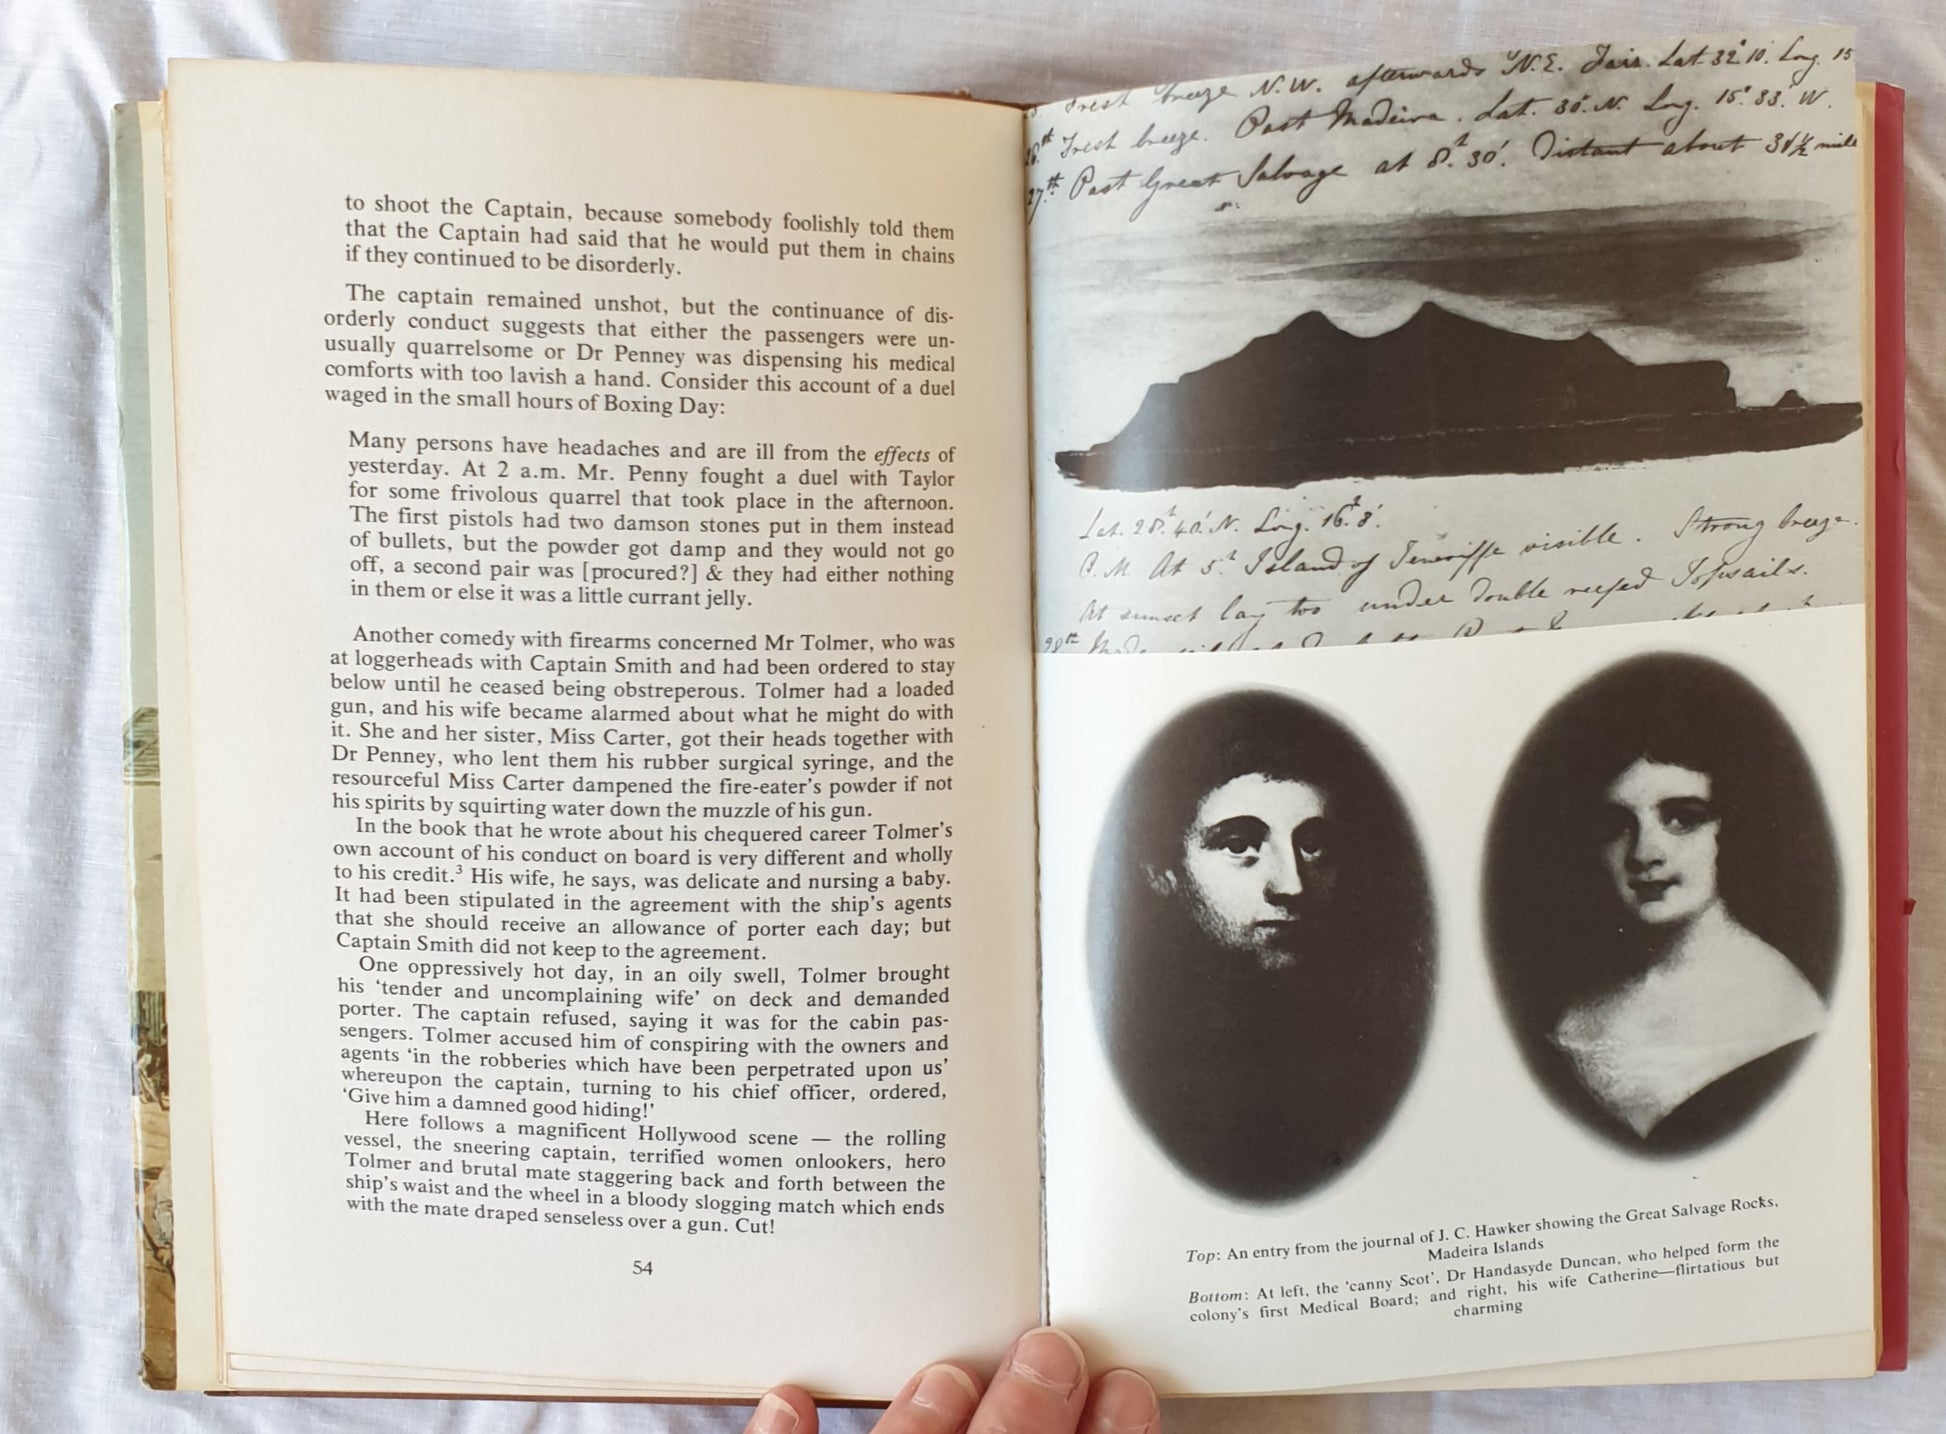 to shoot the Captain, because somebody foolishly told them
that the Captain had said that he would put them in chains
if they continued to be disorderly.
The captain remained unshot, but the continuance of dis-
orderly conduct suggests that either the passengers were un-
usually quarrelsome or Dr Penney was dispensing his medical
comforts with too lavish a hand. Consider this account of a duel
waged in the small hours of Boxing Day:
Many persons have headaches and are ill from the effects of
yesterday. At 2 a.m. Mr. Penny fought a duel with Taylor
for some frivolous quarrel that took place in the afternoon.
The first pistols had two damson stones put in them instead
of bullets, but the powder got damp and they would not go
off, a second pair was [procured?] & they had either nothing
in them or else it was a little currant jelly.
Another comedy with firearms concerned Mr Tolmer, who was
at loggerheads with Captain Smith and had been ordered to stay
below until he ceased being obstreperous. Tolmer had a loaded
gun, and his wife became alarmed about what he might do with
it. She and her sister, Miss Carter, got their heads together with
Dr Penney, who lent them his rubber surgical syringe, and the
resourceful Miss Carter dampened the fire-eater's powder if not
his spirits by squirting water down the muzzle of his gun.
In the book that he wrote about his chequered career Tolmer's
own account of his conduct on board is very different and wholly
to his credit.³ His wife, he says, was delicate and nursing a baby.
It had been stipulated in the agreement with the ship's agents
that she should receive an allowance of porter each day; but
Captain Smith did not keep to the agreement.
One oppressively hot day, in an oily swell, Tolmer brought
his 'tender and uncomplaining wife' on deck and demanded
porter. The captain refused, saying it was for the cabin pas-
sengers. Tolmer accused him of conspiring with the owners and
agents 'in the robberies which have been perpetrated upon us'
whereupon the captain, turning to his chief officer, ordered,
'Give him a damned good hiding!'
Here follows a magnificent Hollywood scene — the rolling
vessel, the sneering captain, terrified women onlookers, hero
Tolmer and brutal mate staggering back and forth between the
ship's waist and the wheel in a bloody slogging match which ends
with the mate draped senseless over a gun. Cut!
54
Fresh breeze N.W. afterwards N.E. Fair. Lat. 32° 10. Long. 15
26th Fresh breeze. Past Madeira. Lat. 30°. N. Long. 15° 33' W.
27th Past Great Salvage at 8h 30'. Distant about mile
Lat. 28° 40' N. Long. 16° 8'.
P.M. At 5h Island of Teneriffe visible. Strong breeze.
At sunset lay too under double reefed Topsails.
28th
Top: An entry from the journal of J. C. Hawker showing the Great Salvage Rocks,
Madeira Islands
Bottom: At left, the 'canny Scot', Dr Handasyde Duncan, who helped form the
colony's first Medical Board; and right, his wife Catherine—flirtatious but
charming